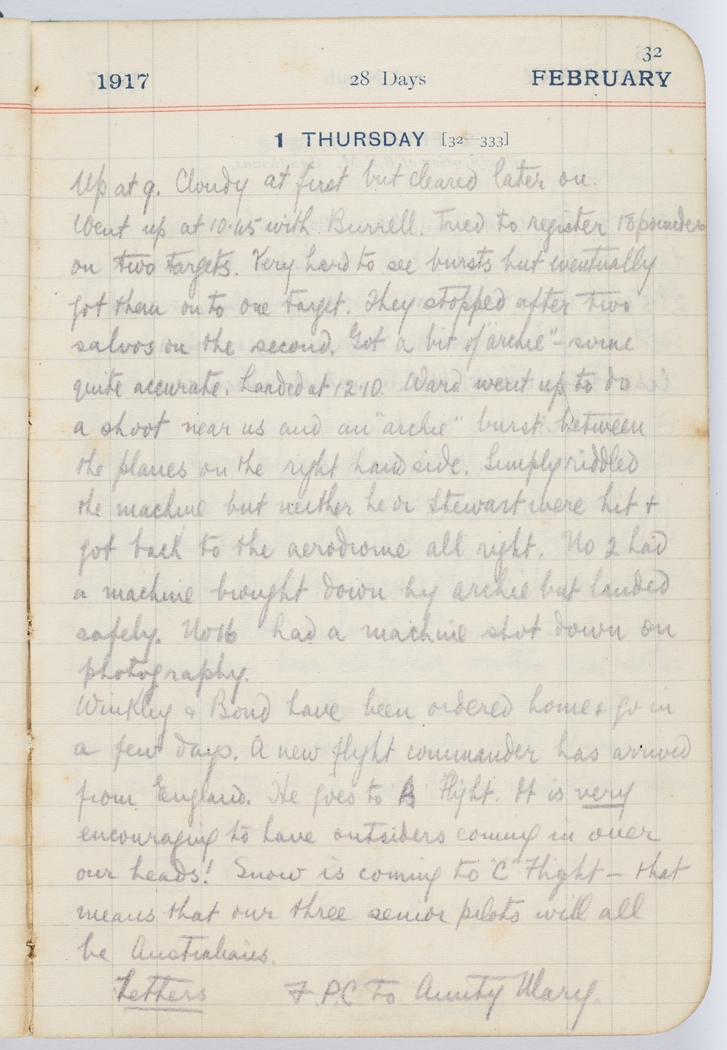 32
1917 28 Days FEBRUARY
1 THURSDAY [32—333]
Up at 9. Cloudy at first but cleared later on.
Went up at 10.45 with Burrell. Tried to register 18 pounders
on two targets. Very hard to see bursts but eventually
got them on to one target. They stopped after two
salvos on the second. Got a bit of "archie" – some
quite accurate. Landed at 12.10. Ward went up to do
a shoot near us and an "archie" burst between
the planes on the right hand side. Simply riddled
the machine but neither he or Stewart were hit +
got back to the aerodrome all right. No 2 had
a machine brought down by archie but landed
safely. No 16 had a machine shot down on
photography.
Winkley & Bond have been ordered home & go in
a few days. A new flight commander has arrived
from England. He goes to B Flight. It is very
encouraging to have outsiders coming in over
our heads! Snow is coming to "C" Flight – that
means that our three senior pilots will all
be Australians.
Letters F.P.C To Aunty Mary.